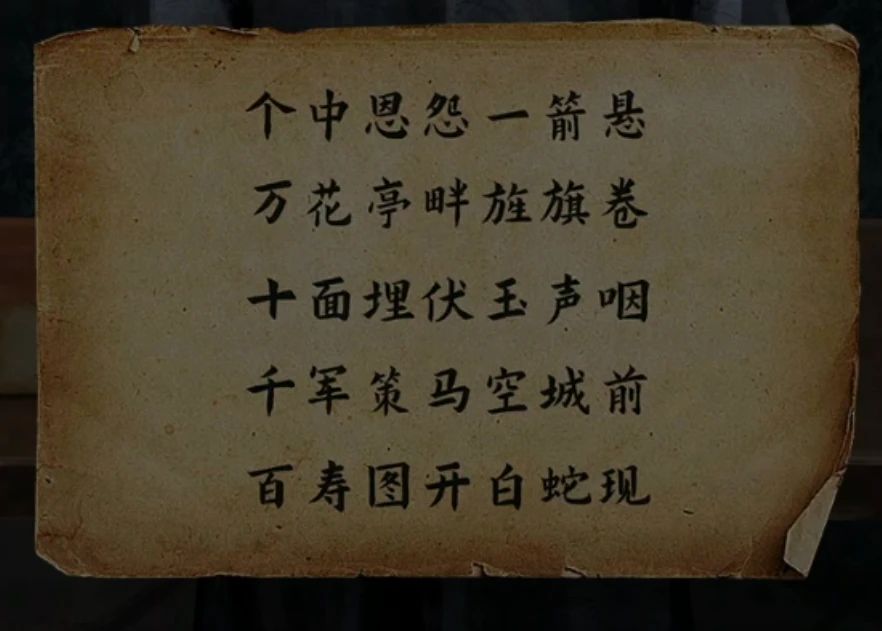 个中恩怨一箭悬
万花亭畔旌旗卷
十面埋伏玉声咽
千军策马空城前
百寿图开白蛇现